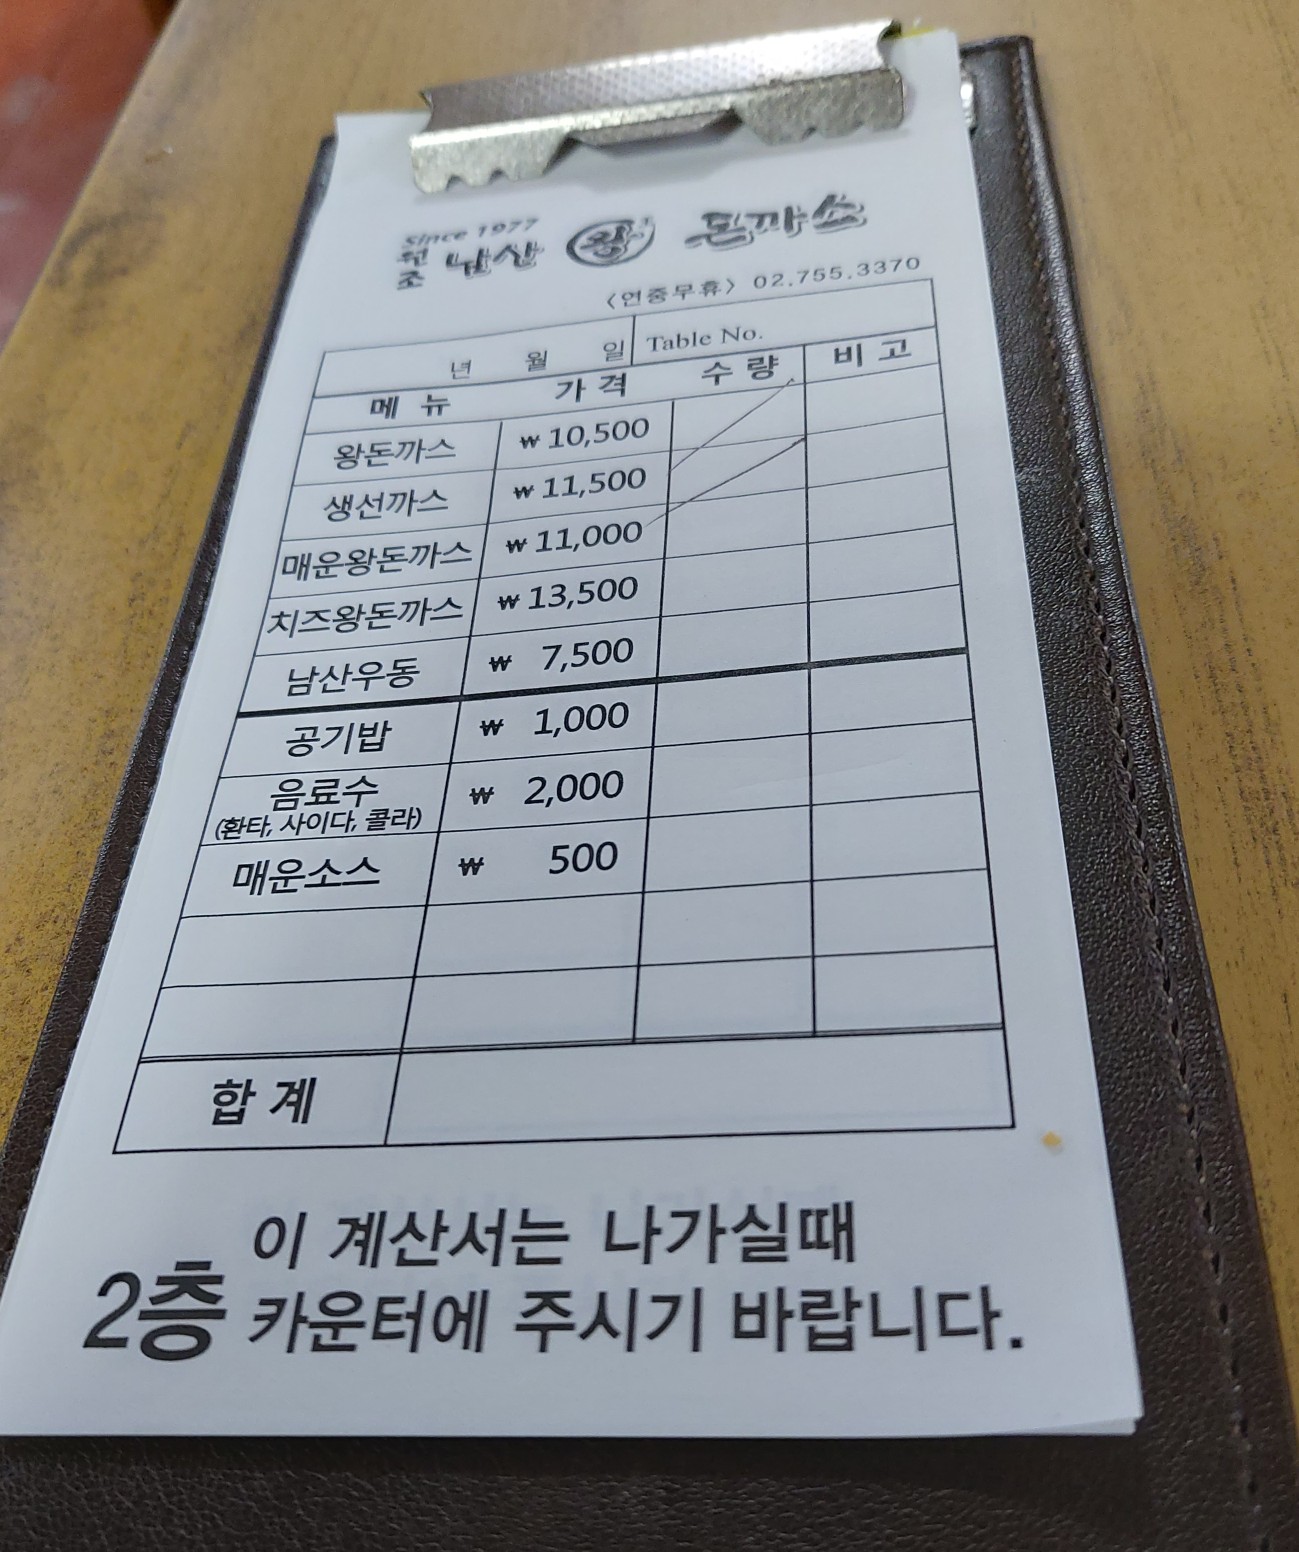 Since 1977
원조 남산 왕 돈까스
〈연중무휴〉 02.755.3370
년 월 일 Table No.
메 뉴 가 격 수 량 비 고
왕돈까스 ₩ 10,500
생선까스 ₩ 11,500
매운왕돈까스 ₩ 11,000
치즈왕돈까스 ₩ 13,500
남산우동 ₩ 7,500
공기밥 ₩ 1,000
음료수 ₩ 2,000
(환타, 사이다, 콜라)
매운소스 ₩ 500
합 계
이 계산서는 나가실때
2층 카운터에 주시기 바랍니다.